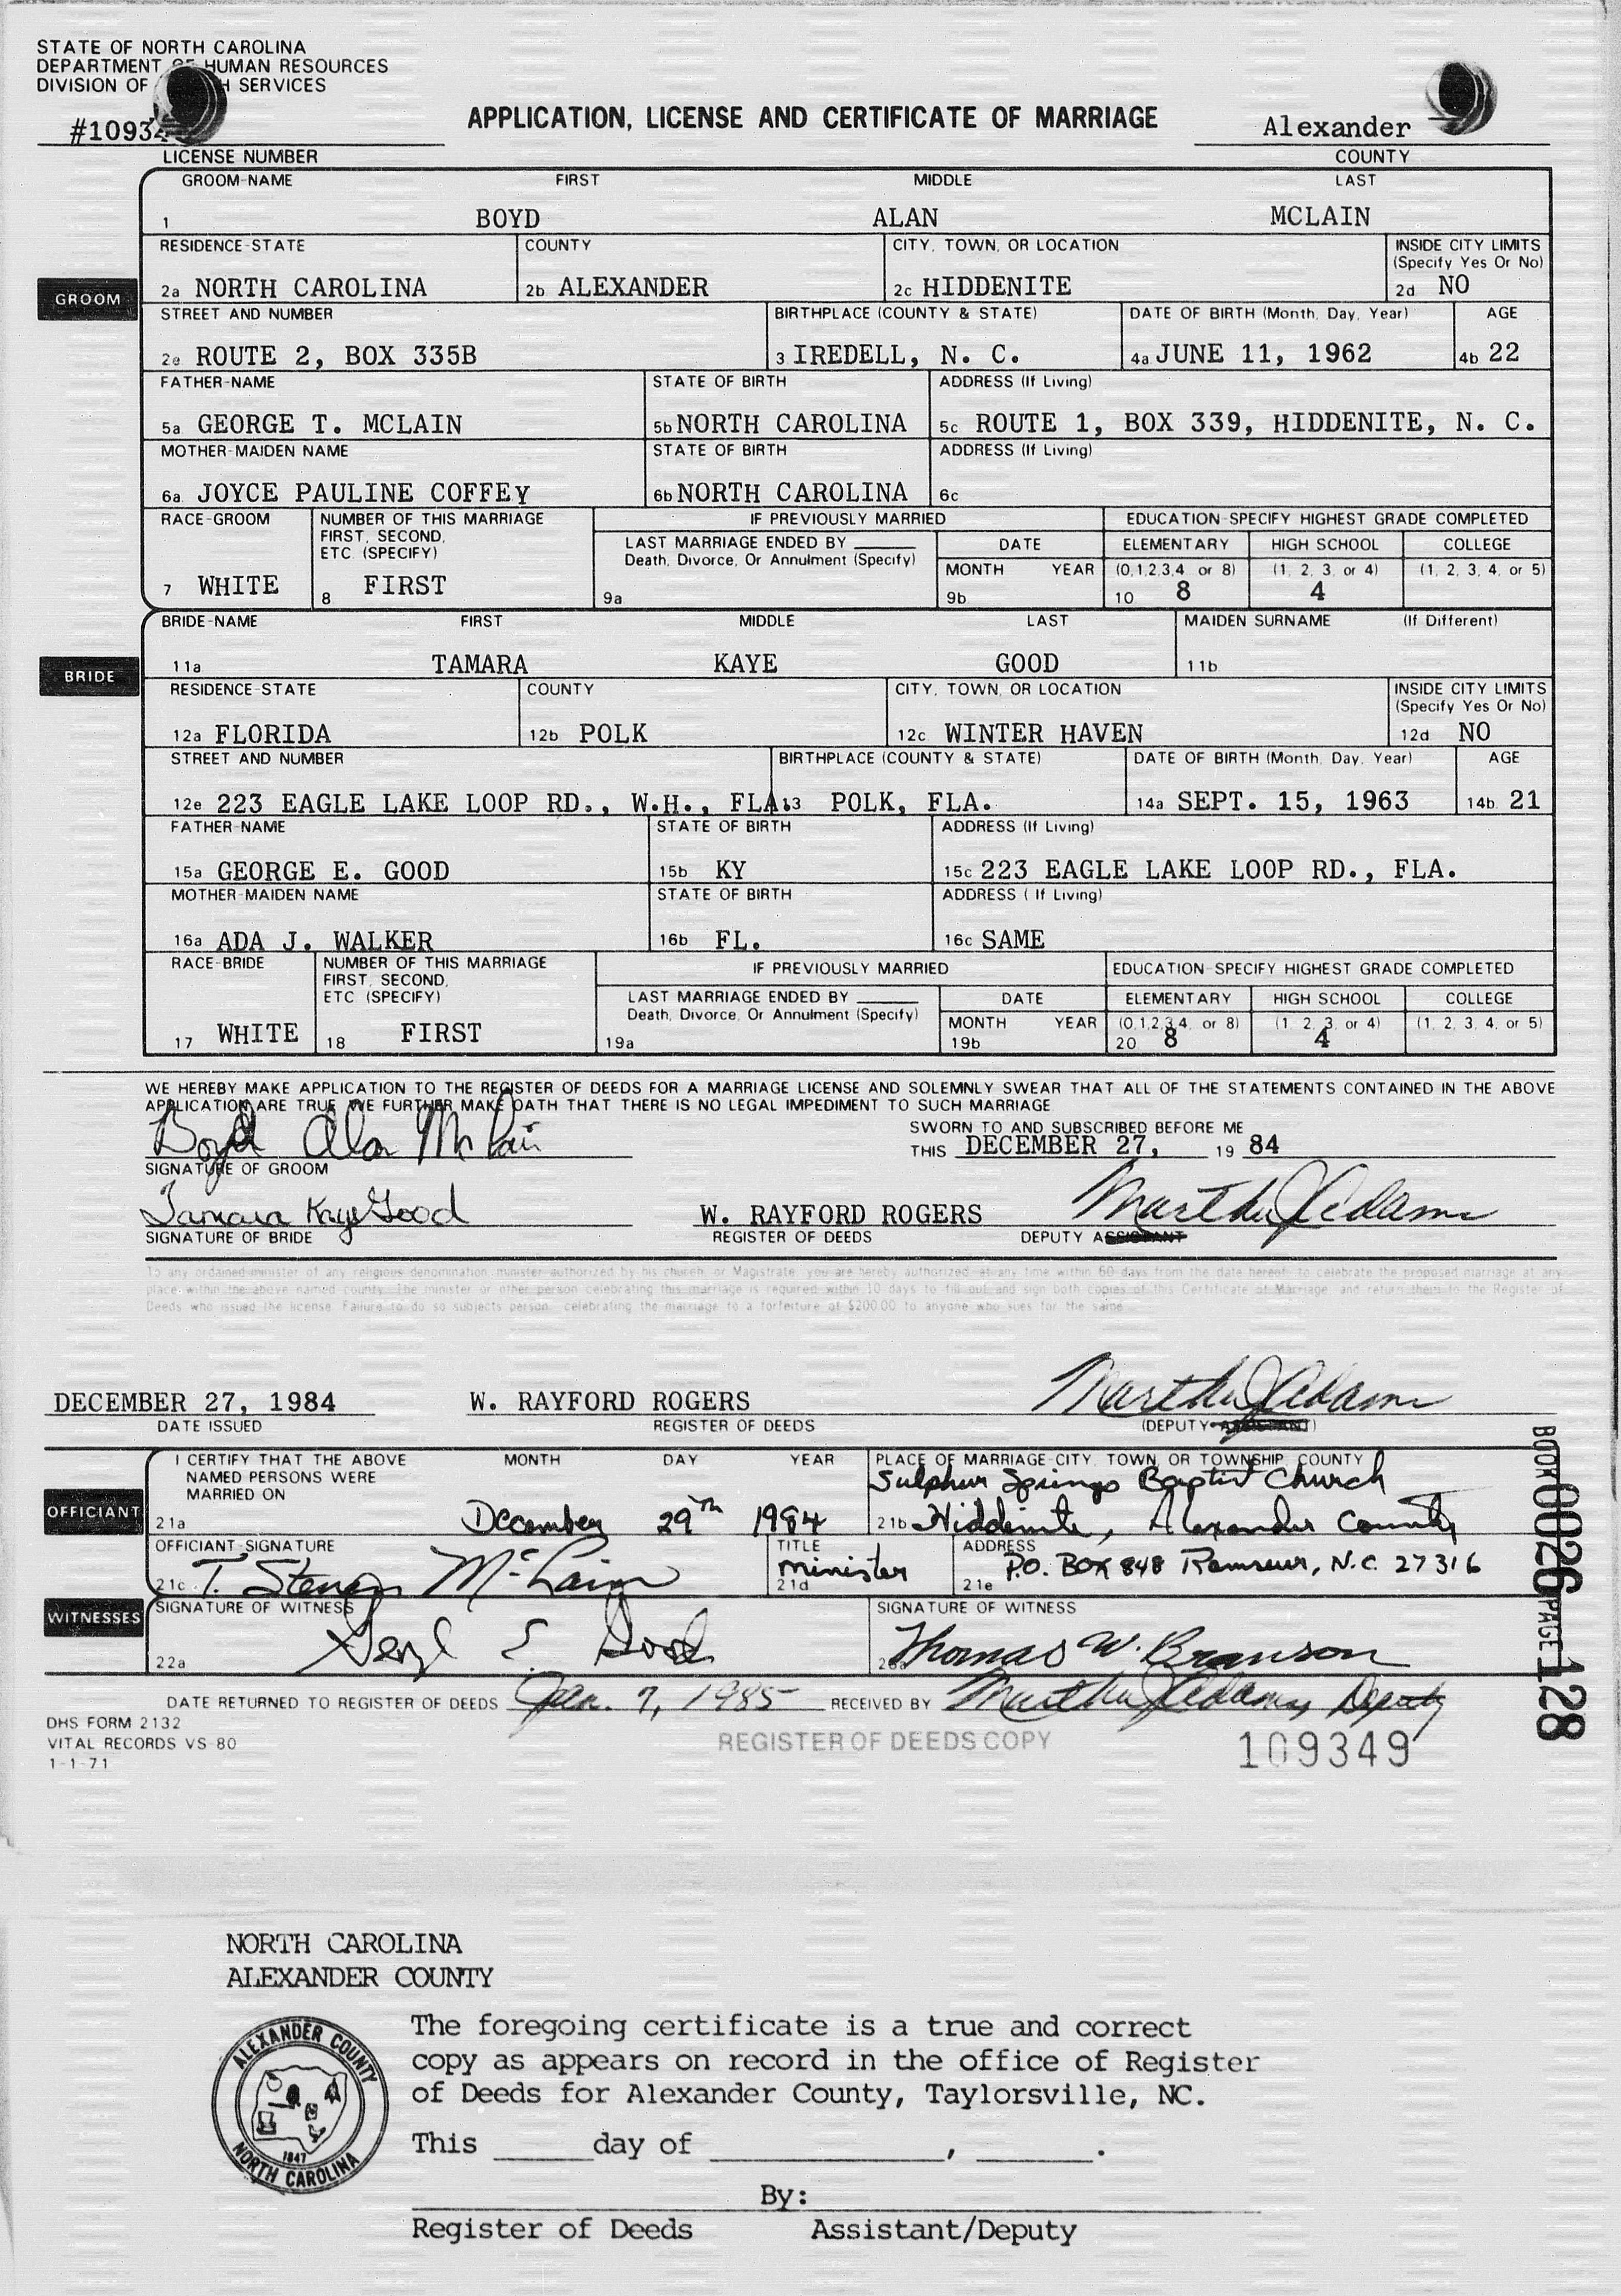 STATE OF NORTH CAROLINA
DEPARTMENT OF HUMAN RESOURCES
DIVISION OF SERVICES
APPLICATION, LICENSE AND CERTIFICATE OF MARRIAGE
#1093 Alexander
LICENSE NUMBER COUNTY
GROOM-NAME FIRST MIDDLE LAST
1 BOYD ALAN MCLAIN
RESIDENCE-STATE COUNTY CITY, TOWN, OR LOCATION INSIDE CITY LIMITS
(Specify Yes Or No)
GROOM
2a NORTH CAROLINA 2b ALEXANDER 2c HIDDENITE 2d NO
STREET AND NUMBER BIRTHPLACE (COUNTY & STATE) DATE OF BIRTH (Month, Day, Year) AGE
2e ROUTE 2, BOX 335B 3 IREDELL, N. C. 4a JUNE 11, 1962 4b 22
FATHER-NAME STATE OF BIRTH ADDRESS (If Living)
5a GEORGE T. MCLAIN 5b NORTH CAROLINA 5c ROUTE 1, BOX 339, HIDDENITE, N. C.
MOTHER-MAIDEN NAME STATE OF BIRTH ADDRESS (If Living)
6a JOYCE PAULINE COFFEY 6b NORTH CAROLINA 6c
RACE-GROOM NUMBER OF THIS MARRIAGE IF PREVIOUSLY MARRIED EDUCATION-SPECIFY HIGHEST GRADE COMPLETED
FIRST, SECOND,
ETC. (SPECIFY)
LAST MARRIAGE ENDED BY DATE ELEMENTARY HIGH SCHOOL COLLEGE
Death, Divorce, Or Annulment (Specify) MONTH YEAR (0,1,2,3,4 or 8) (1, 2, 3, or 4) (1, 2, 3, 4, or 5)
7 WHITE 8 FIRST 9a 9b 10 8 4
BRIDE-NAME FIRST MIDDLE LAST MAIDEN SURNAME (If Different)
11a TAMARA KAYE GOOD 11b
BRIDE
RESIDENCE-STATE COUNTY CITY, TOWN, OR LOCATION INSIDE CITY LIMITS
(Specify Yes Or No)
12a FLORIDA 12b POLK 12c WINTER HAVEN 12d NO
STREET AND NUMBER BIRTHPLACE (COUNTY & STATE) DATE OF BIRTH (Month, Day, Year) AGE
12e 223 EAGLE LAKE LOOP RD., W.H., FLA. 13 POLK, FLA. 14a SEPT. 15, 1963 14b 21
FATHER-NAME STATE OF BIRTH ADDRESS (If Living)
15a GEORGE E. GOOD 15b KY 15c 223 EAGLE LAKE LOOP RD., FLA.
MOTHER-MAIDEN NAME STATE OF BIRTH ADDRESS ( If Living)
16a ADA J. WALKER 16b FL. 16c SAME
RACE-BRIDE NUMBER OF THIS MARRIAGE IF PREVIOUSLY MARRIED EDUCATION-SPECIFY HIGHEST GRADE COMPLETED
FIRST, SECOND,
ETC (SPECIFY)
LAST MARRIAGE ENDED BY DATE ELEMENTARY HIGH SCHOOL COLLEGE
Death, Divorce, Or Annulment (Specify) MONTH YEAR (0,1,2,3,4, or 8) (1, 2, 3, or 4) (1, 2, 3, 4, or 5)
17 WHITE 18 FIRST 19a 19b 20 8 4
WE HEREBY MAKE APPLICATION TO THE REGISTER OF DEEDS FOR A MARRIAGE LICENSE AND SOLEMNLY SWEAR THAT ALL OF THE STATEMENTS CONTAINED IN THE ABOVE
APPLICATION ARE TRUE WE FURTHER MAKE OATH THAT THERE IS NO LEGAL IMPEDIMENT TO SUCH MARRIAGE
Boyd Alan McLain
SIGNATURE OF GROOM
SWORN TO AND SUBSCRIBED BEFORE ME
THIS DECEMBER 27, 19 84
Tamara Kaye Good W. RAYFORD ROGERS Martha J Adams
SIGNATURE OF BRIDE REGISTER OF DEEDS DEPUTY ASSISTANT
To any ordained minister of any religious denomination minister authorized by his church, or Magistrate you are hereby authorized, at any time within 60 days from the date hereof, to celebrate the proposed marriage at any
place within the above named county. The minister or other person celebrating this marriage is required within 10 days to fill out and sign both copies of this Certificate of Marriage and return them to the Register of
Deeds who issued the license. Failure to do so subjects person celebrating the marriage to a forfeiture of $200.00 to anyone who sues for the same
DECEMBER 27, 1984 W. RAYFORD ROGERS Martha J Adams
DATE ISSUED REGISTER OF DEEDS (DEPUTY ASSISTANT)
I CERTIFY THAT THE ABOVE MONTH DAY YEAR PLACE OF MARRIAGE-CITY, TOWN, OR TOWNSHIP, COUNTY
NAMED PERSONS WERE Sulphur Springs Baptist Church
MARRIED ON
OFFICIANT
21a December 29th 1984 21b Hiddenite, Alexander County
OFFICIANT-SIGNATURE TITLE ADDRESS
21c T. Steven McLain 21d minister 21e P.O. Box 848 Ramseur, N.C. 27316
WITNESSES
SIGNATURE OF WITNESS SIGNATURE OF WITNESS
22a E. Good Thomas W. Branson
DATE RETURNED TO REGISTER OF DEEDS Jan. 7, 1985 RECEIVED BY Martha J Adams, Deputy
DHS FORM 2132
VITAL RECORDS VS-80
1-1-71
REGISTER OF DEEDS COPY
109349
BOOK 0026 PAGE 128
NORTH CAROLINA
ALEXANDER COUNTY
ALEXANDER COUNTY
1847
NORTH CAROLINA
The foregoing certificate is a true and correct
copy as appears on record in the office of Register
of Deeds for Alexander County, Taylorsville, NC.
This day of , .
By:
Register of Deeds Assistant/Deputy